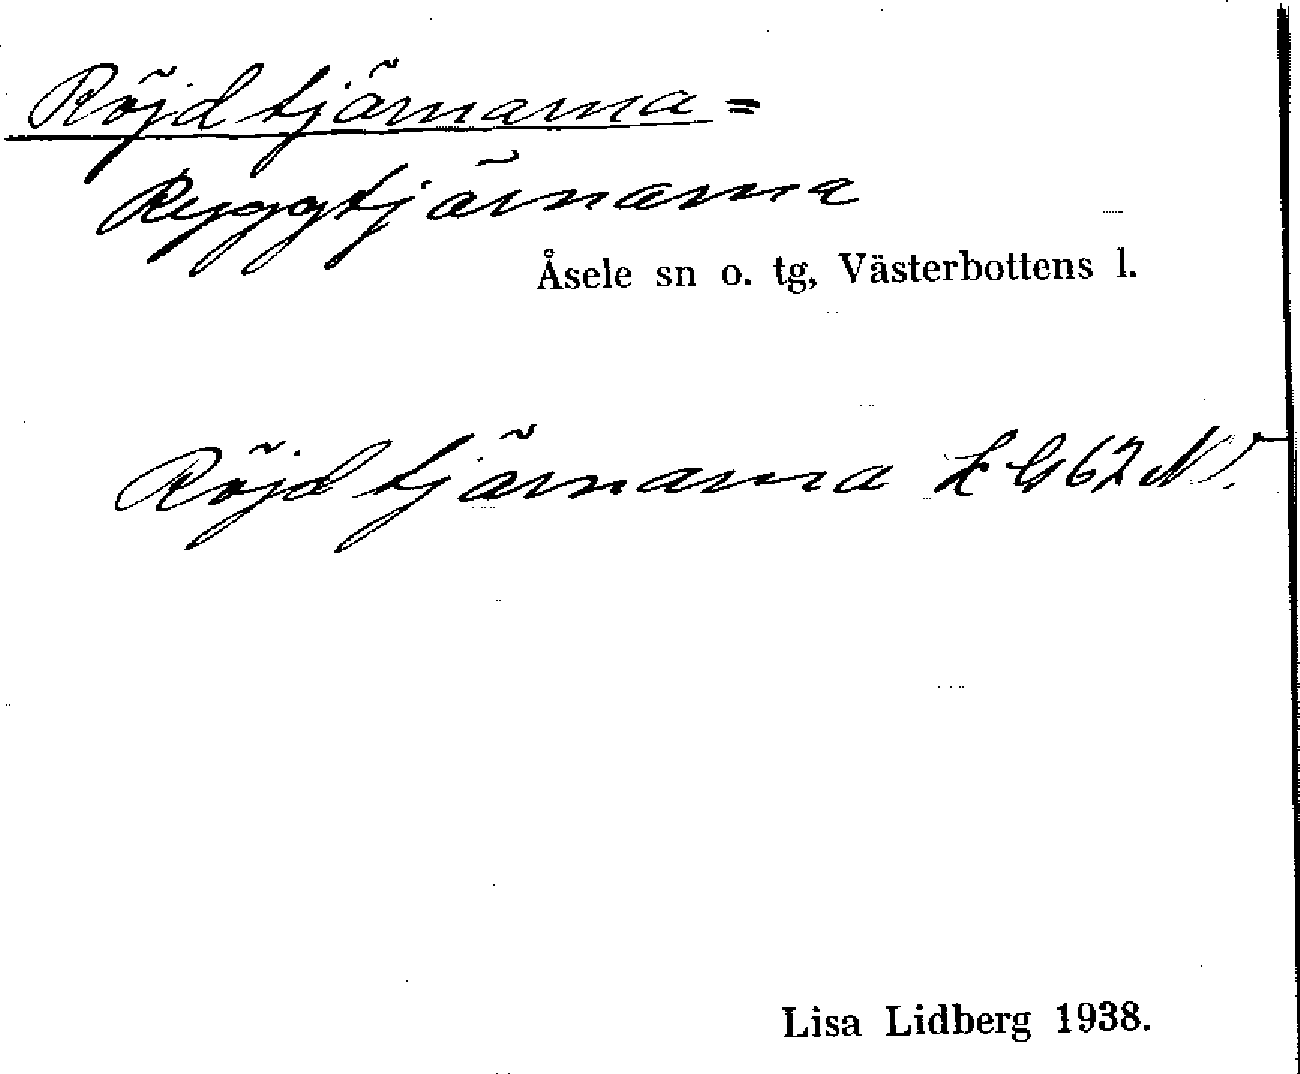 Röjdtjärnarna =
Ryggtjärnarna
Åsele sn o. tg, Västerbottens l.
Röjdtjärnarna LG 62 NV.
Lisa Lidberg 1938.